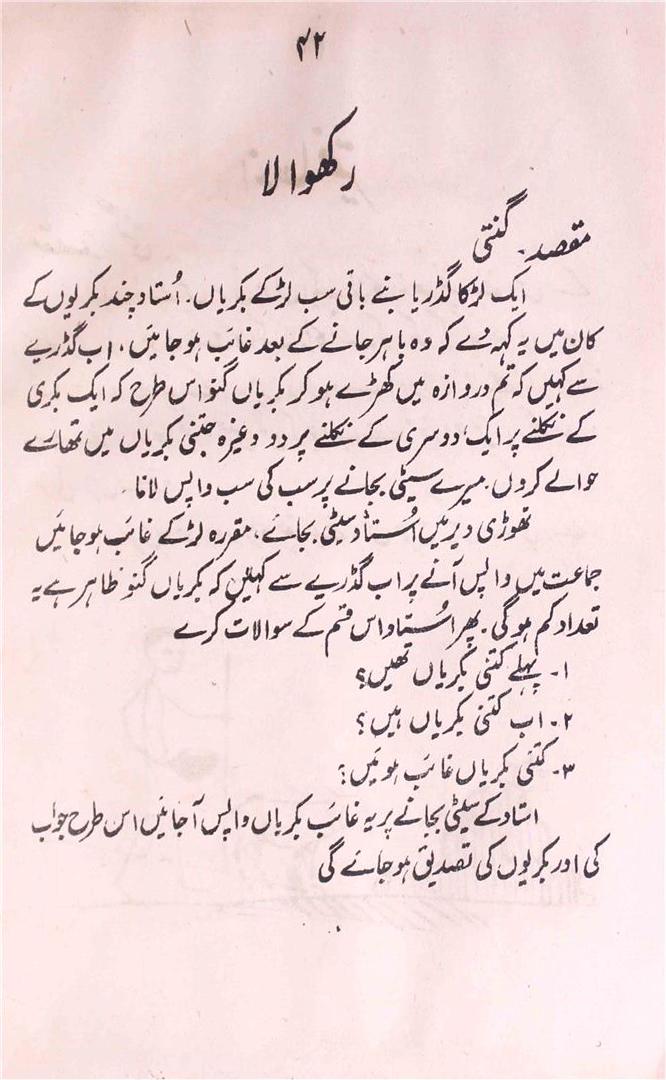 ۴۲
رکھوالا
مقصد۔ گنتی
ایک لڑکا گڈریا بنے باقی سب لڑکے بکریاں۔ اُستاد چند بکریوں کے
کان میں یہ کہہ دے کہ وہ باہر جانے کے بعد غائب ہو جائیں، اب گڈریے
سے کہیں کہ تم دروازہ میں کھڑے ہو کر بکریاں گنو اس طرح کہ ایک بکری
کے نکلنے پر ایک، دوسری کے نکلنے پر دو وغیرہ جتنی بکریاں میں تمھارے
حوالے کروں۔ میرے سیٹی بجانے پر سب کی سب واپس لانا۔
تھوڑی دیر میں اُستاد سیٹی بجائے، مقررہ لڑکے غائب ہو جائیں
جماعت میں واپس آنے پر اب گڈریے سے کہیں کہ بکریاں گنو ظاہر ہے یہ
تعداد کم ہوگی۔ پھر اُستاد اس قسم کے سوالات کرے
۱۔ پہلے کتنی بکریاں تھیں؟
۲۔ اب کتنی بکریاں ہیں؟
۳۔ کتنی بکریاں غائب ہوئیں؟
استاد کے سیٹی بجانے پر یہ غائب بکریاں واپس آجائیں اس طرح جواب
کی اور بکریوں کی تصدیق ہو جائے گی